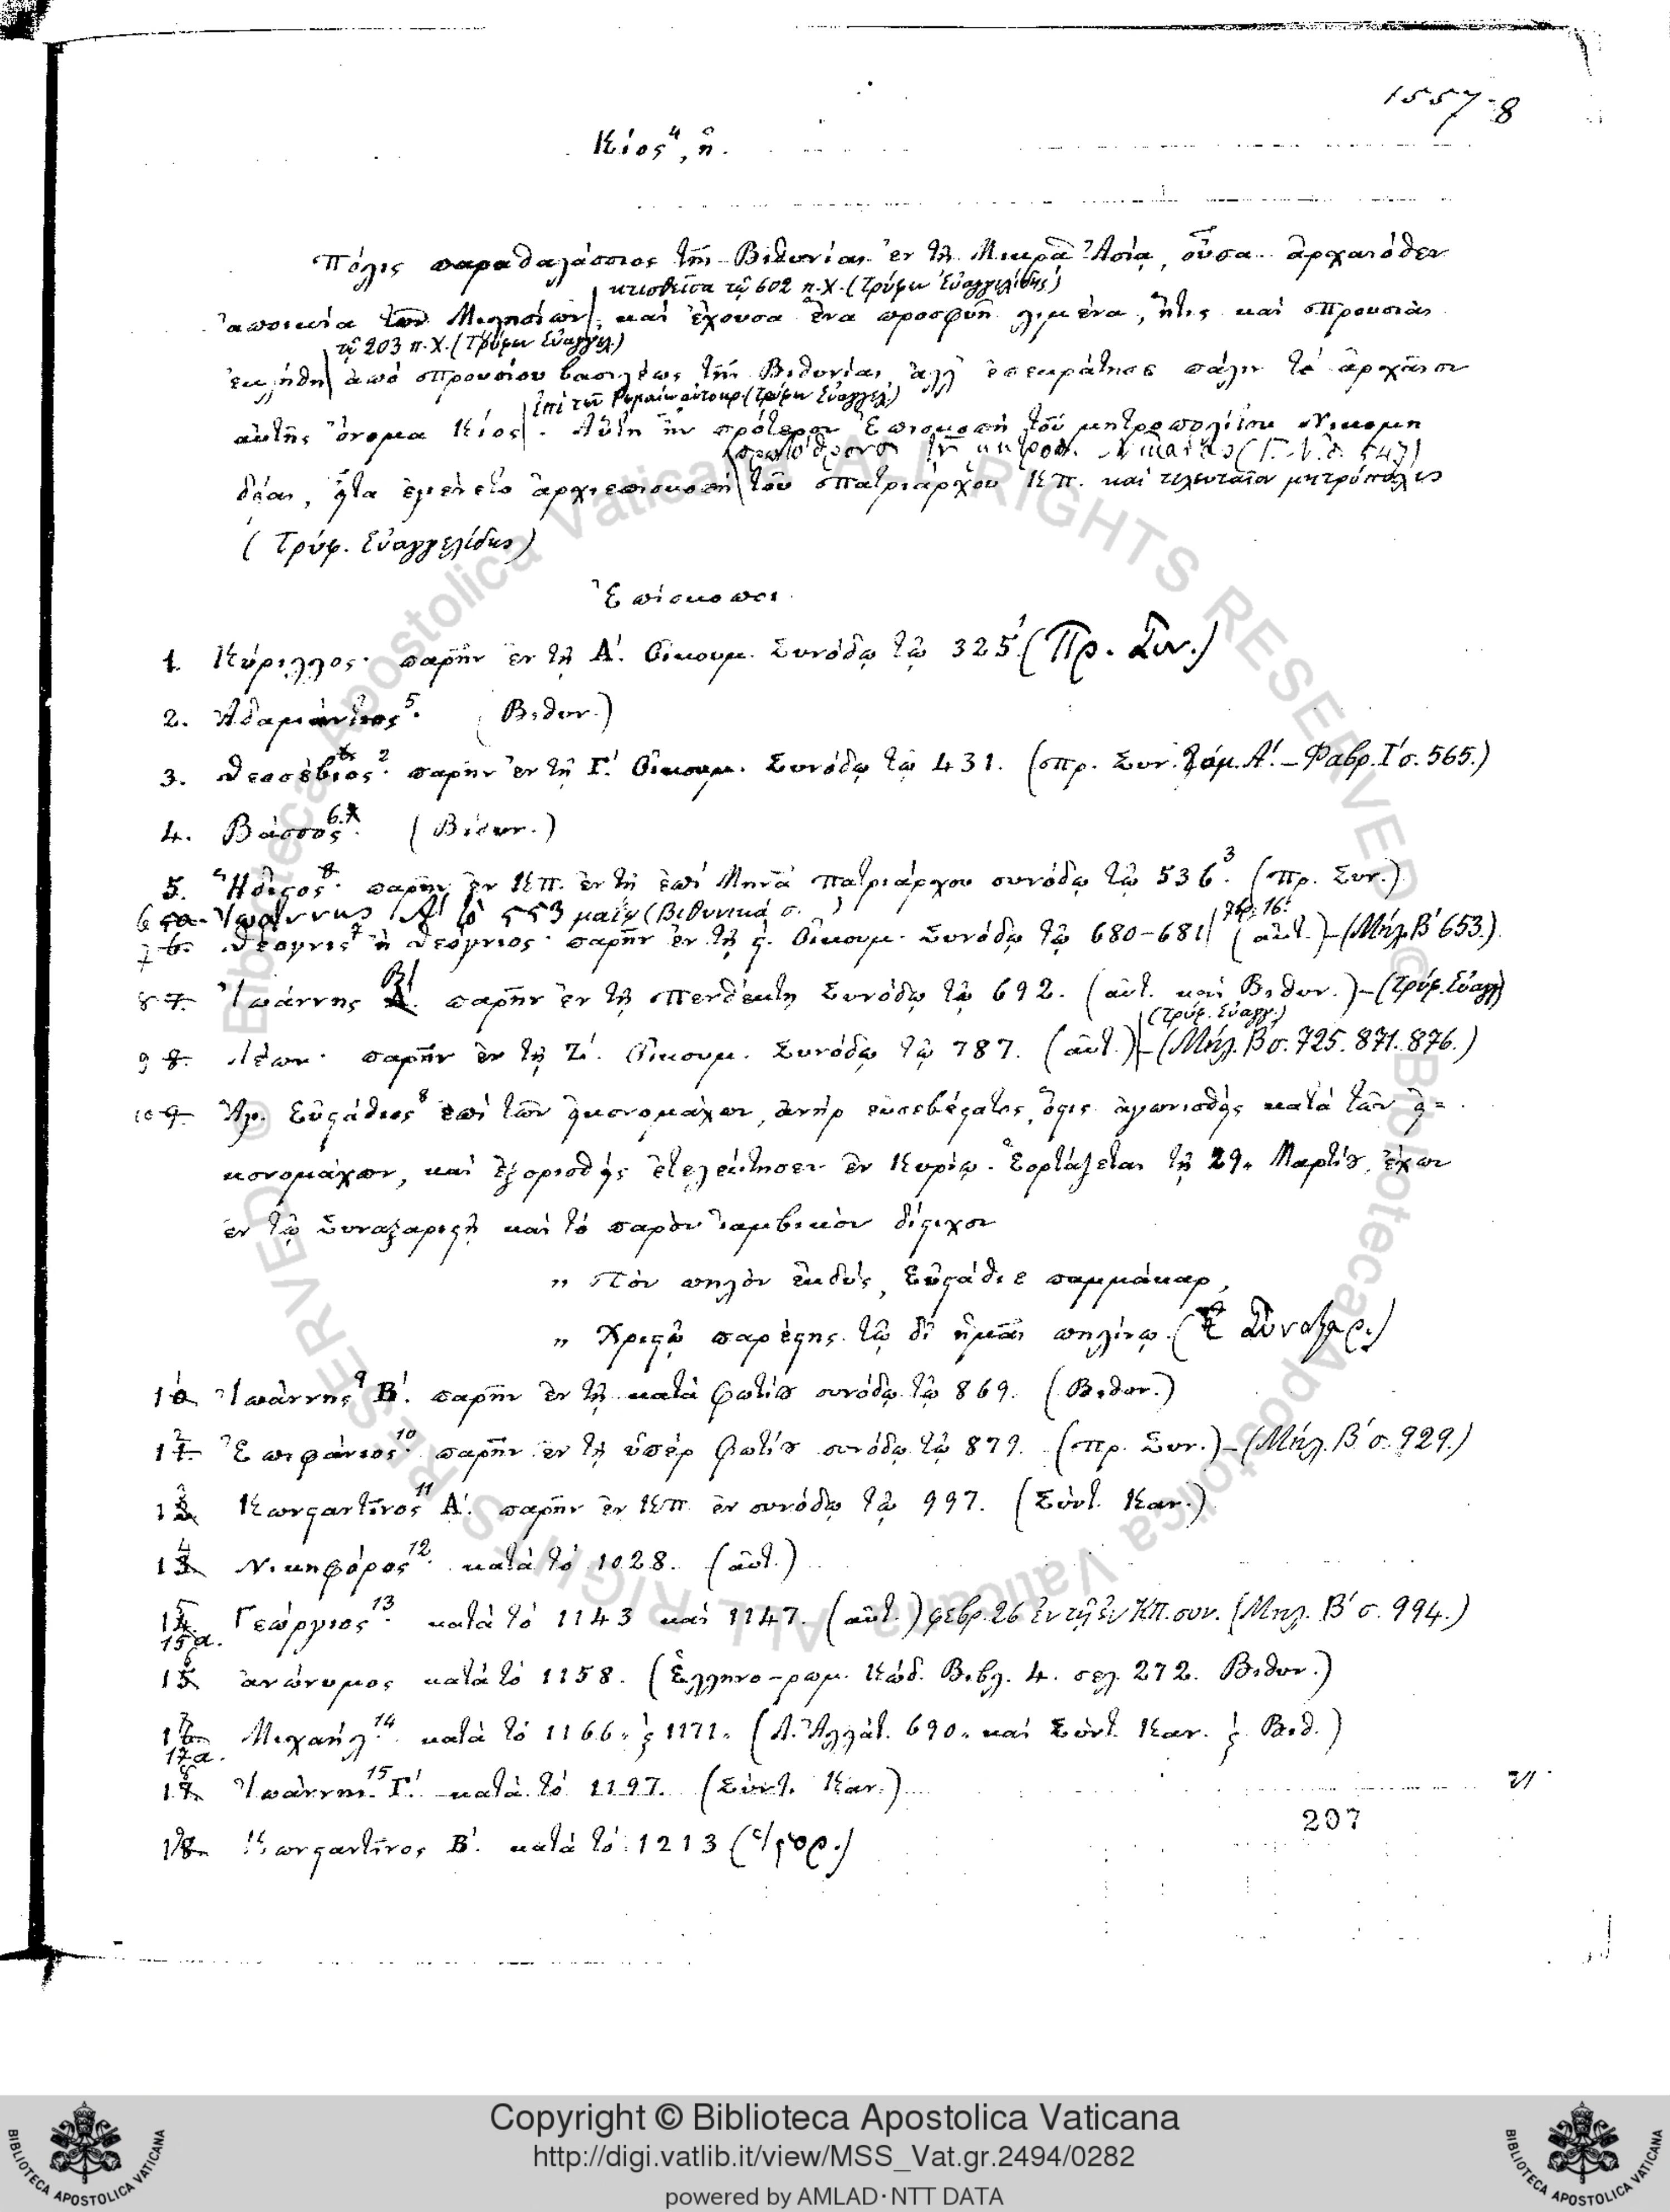 1557-8
Κίος⁴, ἡ.
Πόλις παραθαλάσσιος τῆς Βιθυνίας ἐν τῇ Μικρᾷ Ἀσίᾳ, οὖσα ἀρχαιόθεν
κτισθεῖσα τῷ 602 π.Χ. (Τρύφων Εὐαγγελίδης)
ἀποικία τῶν Μιλησίων, καὶ ἔχουσα ἕνα προσφυῆ λιμένα, ἥτις καὶ Προυσιὰς
τῷ 203 π.Χ. (Τρύφων Εὐαγγελ.)
ἐκλήθη ἀπὸ Προυσίου βασιλέως τῆς Βιθυνίας ἀλλ' ἐπεκράτησε πάλιν τὸ ἀρχαῖον
ἐπὶ τῶν Ρωμαίων αὐτοκρ. (Τρύφων Εὐαγγελ.)
αὐτῆς ὄνομα Κίος. Αὕτη ἦν πρότερον Ἐπισκοπὴ τοῦ μητροπολίτου Νικομη
πρωτόθρονος τῆς μητροπ. Νικαίας 547)
δείας, εἶτα ἐγένετο ἀρχιεπισκοπὴ τοῦ Πατριάρχου ΚΠ. καὶ τελευταῖον μητρόπολις
(Τρύφ. Εὐαγγελίδης)
Ἐπίσκοποι.
1. Κύριλλος· παρῆν ἐν τῇ Α΄. Οἰκουμ. Συνόδῳ τῷ 325¹ (Πρ. Συν.)
2. Ἀδαμάντιος⁵· (Βιθυν.)
3. Θεοσέβιος²· παρῆν ἐν τῇ Γ΄. Οἰκουμ. Συνόδῳ τῷ 431. (Πρ. Συν. Τόμ. Α΄. – Φαβρ. Ι΄ σ. 565.)
4. Βάσσος⁶· (Βιθυν.)
5. Ἥδιστος· παρῆν ἐν ΚΠ. ἐν τῇ ἐπὶ Μηνᾶ Πατριάρχου συνόδῳ τῷ 536³. (Πρ. Συν.)
6 5α. Ἰωάννης Α΄ τὸ 553 μαΐῳ (Βιθυνικὰ σ. )
7βρ. 16.
7 6. Θέογνις⁷ ἢ Θεόγνιος· παρῆν ἐν τῇ ϛ΄. Οἰκουμ. Συνόδῳ τῷ 680-681 (αὐτ.) – (Μήλ. Β΄ 653.)
8 7. Ἰωάννης Β΄. παρῆν ἐν τῇ Πενθέκτῃ Συνόδῳ τῷ 692. (αὐτ. καὶ Βιθυν.) – (Τρύφ. Εὐαγγ)
(Τρύφ. Εὐαγγ.)
9 8. Λέων· παρῆν ἐν τῇ Ζ΄. Οἰκουμ. Συνόδῳ τῷ 787. (αὐτ.) – (Μήλ. Β σ. 725. 871. 876.)
10 9. Ἅγ. Εὐστάθιος⁸ ἐπὶ τῶν εἰκονομάχων, ἀνὴρ εὐσεβέστατος, ὅστις ἀγωνισθεὶς κατὰ τῶν εἰ=
κονομάχων, καὶ ἐξορισθεὶς ἐτελεύτησεν ἐν Κυρίῳ. Ἑορτάζεται τῇ 29. Μαρτίου, ἔχων
ἐν τῷ Συναξαριστῇ καὶ τὸ παρὸν ἰαμβικὸν δίστιχον
„ Τὸν πηλὸν ἐκδύς, Εὐστάθιε παμμάκαρ,
„ Χριστῷ παρέστης τῷ δι' ἡμᾶς πηλίνῳ. ( Συναξαρ.)
10 Ἰωάννης⁹ Β΄. παρῆν ἐν τῇ κατὰ Φωτίου συνόδῳ τῷ 869. (Βιθυν.)
12 Ἐπιφάνιος¹⁰· παρῆν ἐν τῇ ὑπὲρ Φωτίου συνόδῳ τῷ 879. (Πρ. Συν.) – (Μήλ. Β΄ σ. 929.)
13 Κωνσταντῖνος¹¹ Α΄. παρῆν ἐν ΚΠ. ἐν συνόδῳ τῷ 997. (Σύντ. Καν.)
14 Νικηφόρος¹²· κατὰ τὸ 1028. (αὐτ.)
15 Γεώργιος¹³· κατὰ τὸ 1143 καὶ 1147. (αὐτ.) φεβρ. 26 ἐν τῇ ἐν ΚΠ. συν. (Μηλ. Β΄ σ. 994.)
15α.
16 ἀνώνυμος κατὰ τὸ 1158. (Ἑλληνο-ρωμ. Κώδ. Βιβλ. 4. σελ. 272. Βιθυν.)
17 Μιχαήλ¹⁴· κατὰ τὸ 1166. ϗ 1171. (Λ. Ἀλλάτ. 690. καὶ Σύντ. Καν. ϗ Βιθ.)
17α.
18 Ἰωάννης¹⁵ Γ΄. κατὰ τὸ 1197. (Σύντ. Καν.)
207
19 Κωνσταντῖνος Β΄. κατὰ τὸ 1213 (Ἱστορ.)
Copyright © Biblioteca Apostolica Vaticana
http://digi.vatlib.it/view/MSS_Vat.gr.2494/0282
powered by AMLAD·NTT DATA
BIBLIOTECA APOSTOLICA VATICANA
BIBLIOTECA APOSTOLICA VATICANA